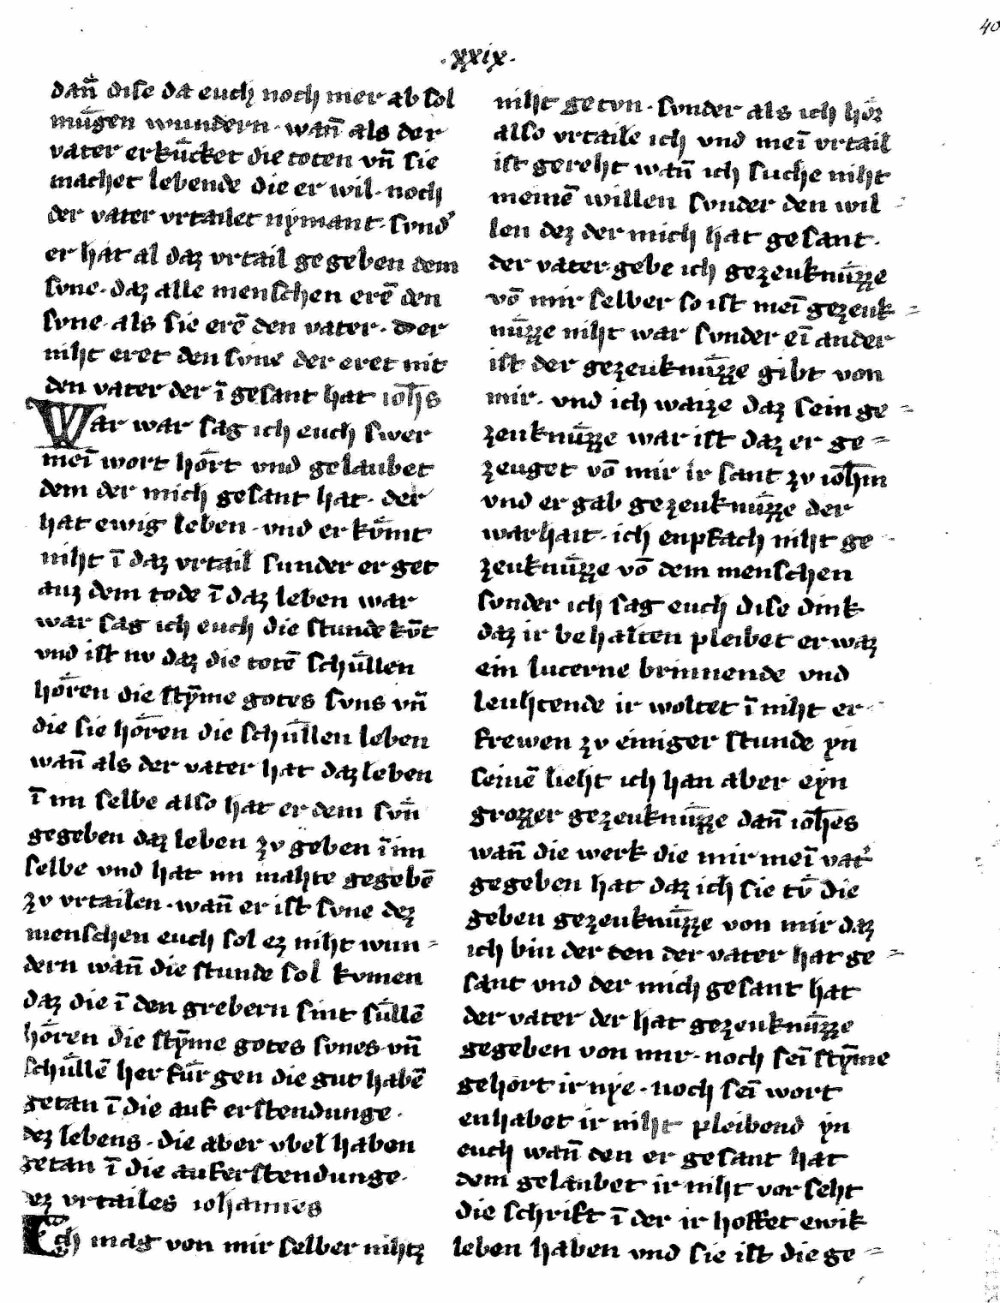 40
·xxix·
dañ dise da euch noch mer ab sol
mu̇gen wundern · wañ als der
vater erku̇cket die toten vñ sie
machet lebende die er wil · noch
der vater vrtailet nymant · sund'
er hat al daz vrtail gegeben dem
sune · daz alle menschen erē den
sune · als sie erē den vater · der
niht eret den sune der eret nit
den vater der ī gesant hat ioh̄s
War war sag ich euch swer
meī wort hört vnd gelaubet
dem der mich gesant hat · der
hat ewig leben · vnd er kümt
niht ī daz vrtail sunder er get
auz dem tode ī daz leben war
war sag ich euch die stunde kūt
vnd ist nv daz die totē schüllen
hören die stȳme gotes suns vñ
die sie hören die schüllen leben
wañ als der vater hat daz leben
ī im selbe also hat er dem suñ
gegeben daz leben zv geben ī im
selbe vnd hat im mahte gegebē
zv vrtailen · wañ er ist sune dez
menschen euch sol ez niht wun=
dern wañ die stunde sol kumen
daz die ī den grebern sint süllē
hören die stȳme gotes sunes vñ
schüllē her für gen die gut habē
getan ī die auf erstendunge ·
dez lebens · die aber vbel haben
getan ī die auferstendunge ·
ez vrtailes iohannes
Ich mag von mir selber nihtz
niht getun · sunder als ich hör
also vrtaile ich vnd meī vrtail
ist gereht wañ ich suche niht
meinē willen sunder den wil=
len dez der mich hat gesant ·
der vater gebe ich gezeuknüzze
vō mir selber so ist meī gezeuk=
nüzze niht war sunder eī ander
ist der gezeuknüzze gibt von
mir · vnd ich waize daz sein ge=
zeuknüzze war ist daz er ge=
zeuget vō mir ir sant zv ioh̄m
vnd er gab gezeuknüzze der
warhait · ich enpfach niht ge=
zeuknüzze vō dem menschen
sunder ich sag euch dise dink
daz ir behalten pleibet er waz
ein lucerne brinnende vnd
leuhtende ir woltet ī niht er=
frewen zv einiger stunde yn
seinē lieht ich han aber eyn
grozzer gezeuknüzze dañ ioh̄es
wañ die werk die mir meī vat'
gegeben hat daz ich sie tü die
geben gezeuknüzze von mir daz
ich bin der den der vater hat ge=
sant vnd der mich gesant hat
der vater der hat gezeuknüzze
gegeben von mir · noch seī stȳme
gehort ir nye · noch seī wort
enhabet ir niht pleibend yn
euch wañ den er gesant hat
dem gelaubet ir niht vorseht
die schrift ī der ir hoffet ewik
leben haben vnd sie ist die ge=